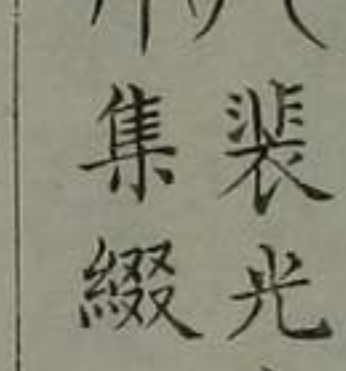 裴光
集綴